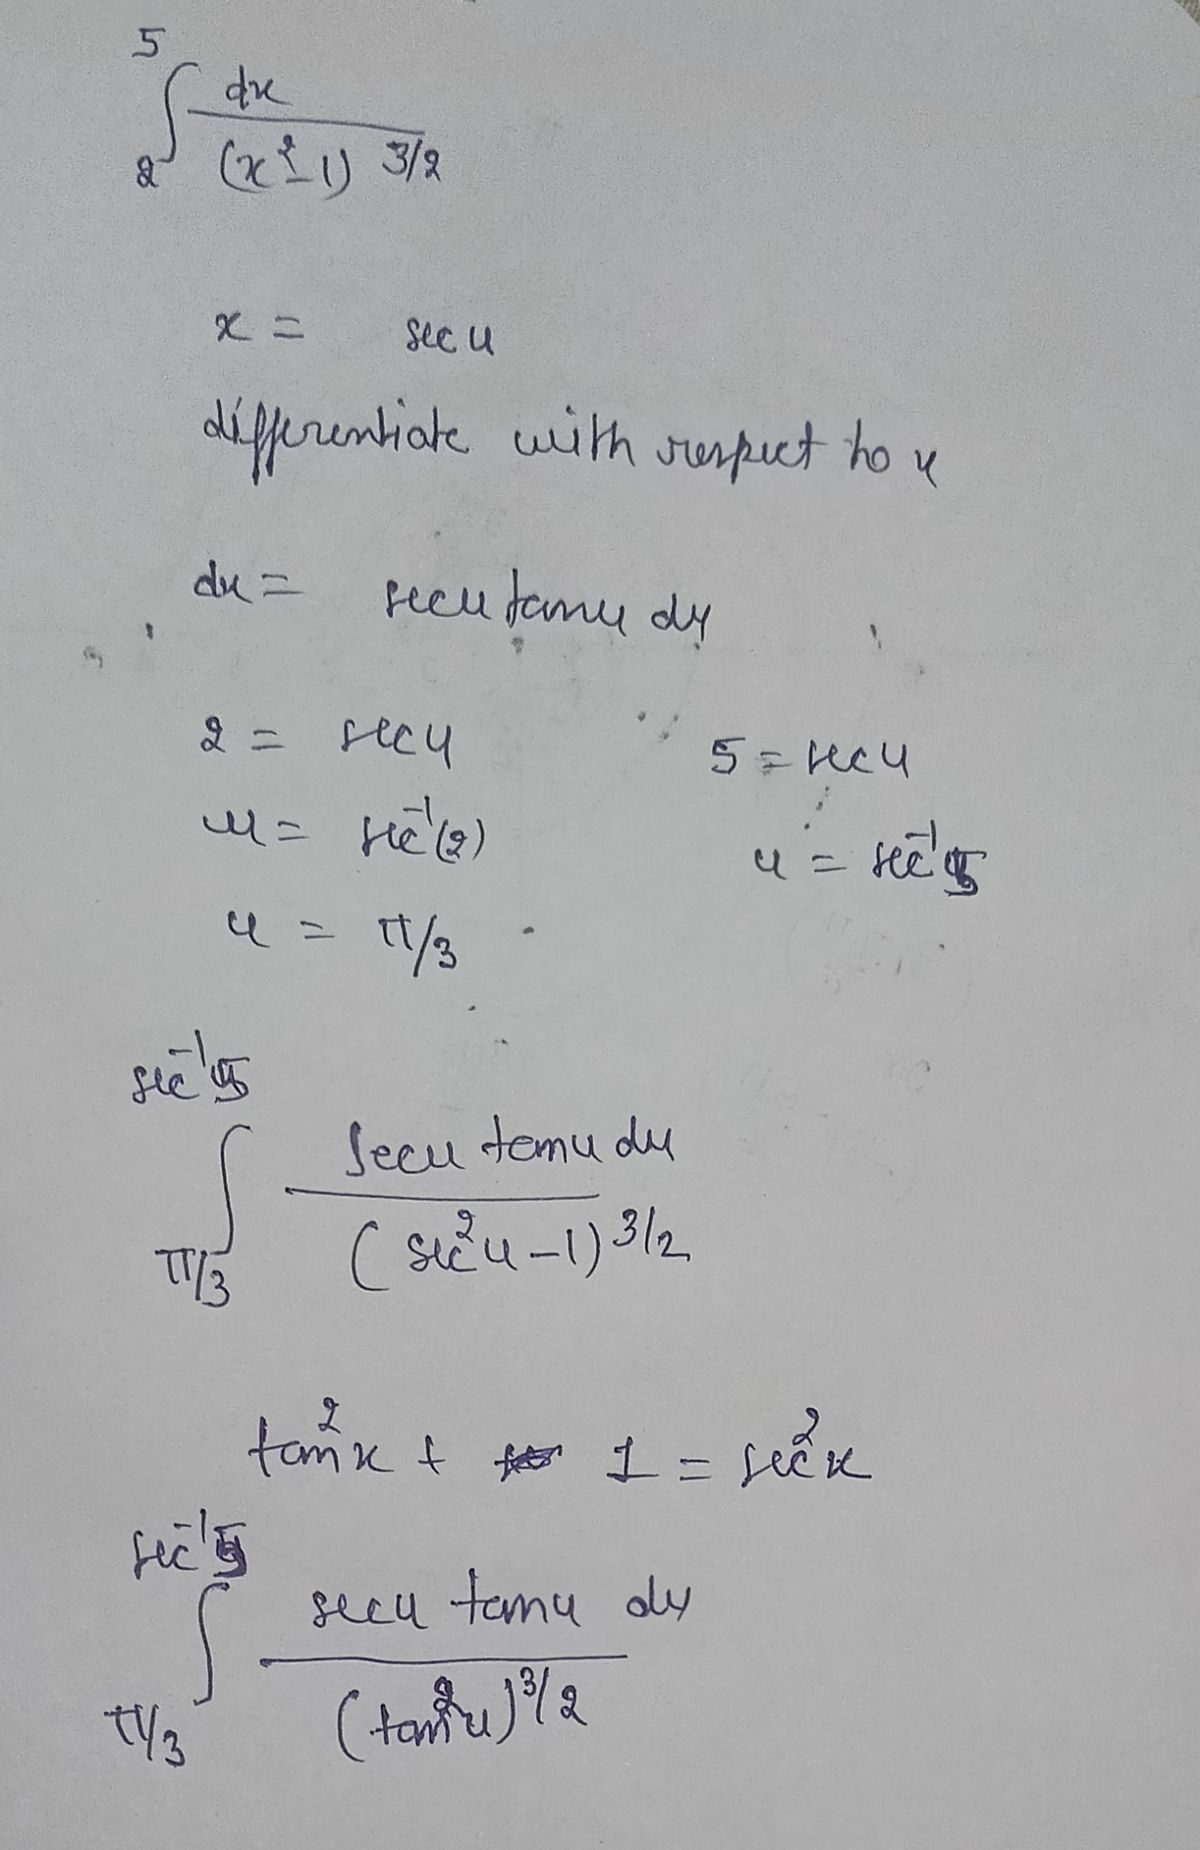 5
∫ dx
2 (x² - 1) 3/2
x = sec u
differentiate with respect to u
dx = sec u tan u du
2 = sec u 5 = sec u
u = sec⁻¹(2) u = sec⁻¹ 5
u = π/3
sec⁻¹ 5
∫ sec u tan u du
π/3 (sec² u - 1) 3/2
tan² x + 1 = sec² x
sec⁻¹ 5
∫ sec u tan u du
π/3 (tan² u) 3/2